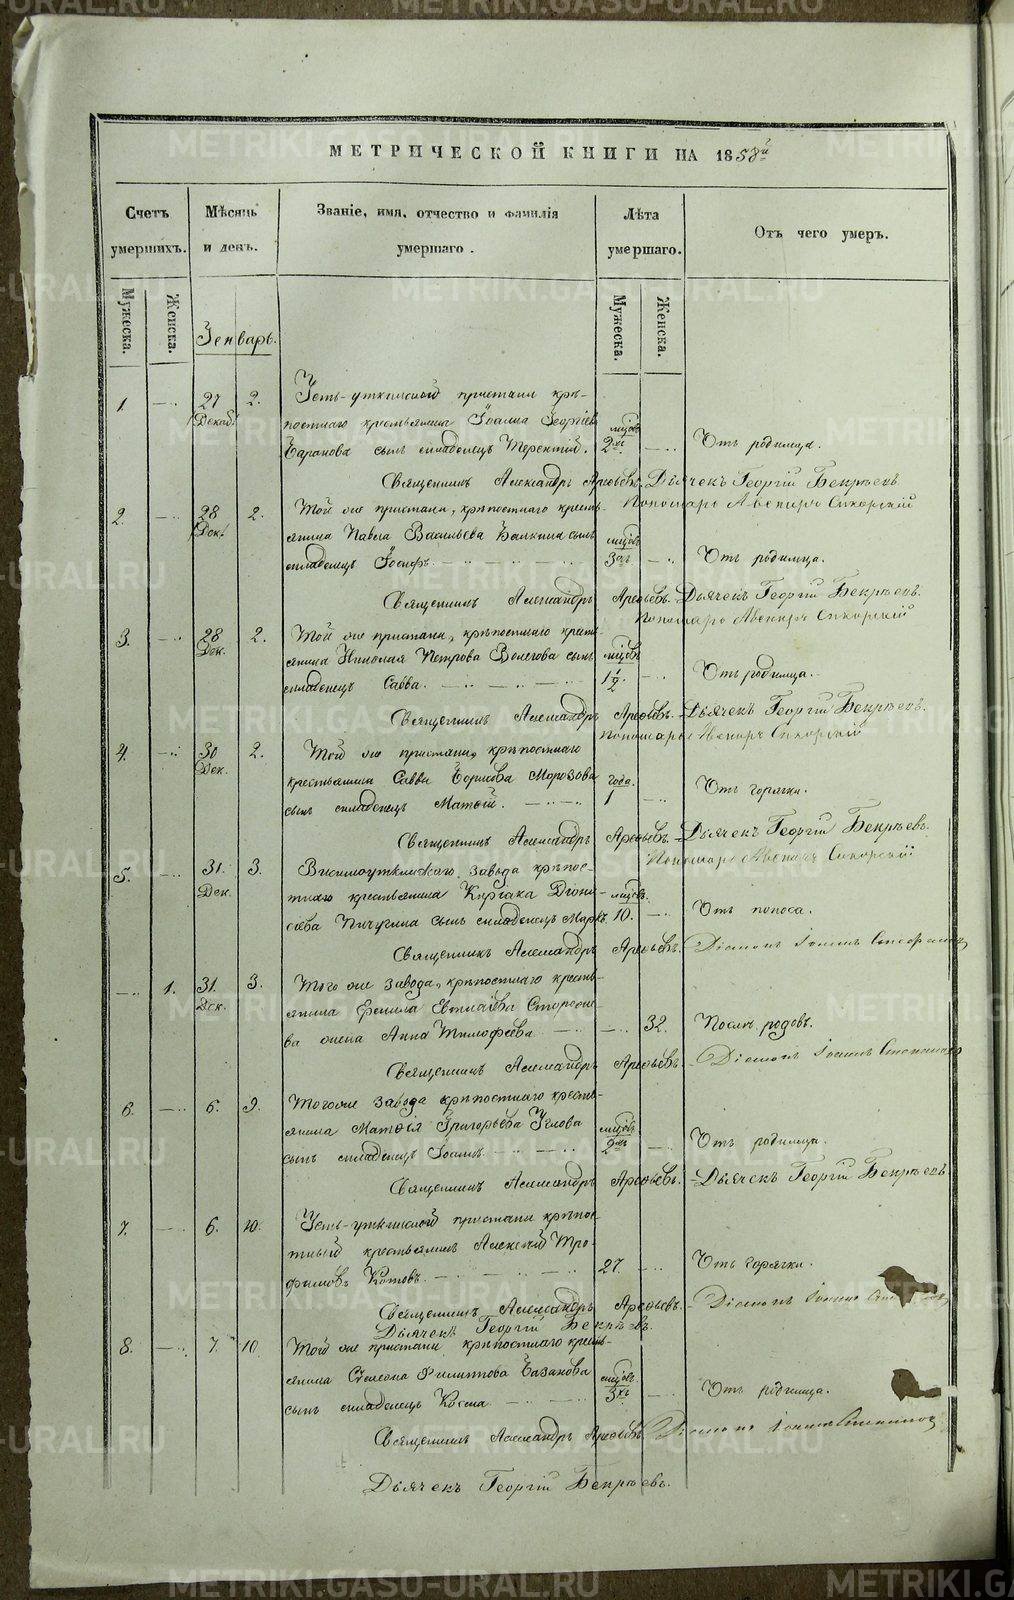 МЕТРИЧЕСКОЙ КНИГИ НА 1858й
Счетъ умершихъ.
Мѣсяцъ и день.
Званіе, имя, отчество и фамилія умершаго.
Лѣта умершаго.
Отъ чего умеръ.
Мужеска.
Женска.
Мужеска.
Женска.
Генварь.
1. 27 2. Усть-уткинской пристани крѣ-
Декаб. постнаго крестьянина Іоанна Георгіева мѣсцовъ
Баранова сынъ младенецъ Терентій. 2хъ. Отъ родимца.
Священникъ Александръ Арефьевъ. Дьячекъ Георгій Бекрѣевъ
Пономарь Авениръ Сикорскій
2. 28 2. Той же пристани, крѣпостнаго кресть-
Дек. янина Павла Васильева Балкина сынъ мѣсцовъ
младенецъ Іосифъ. 3хъ Отъ родимца.
Священникъ Александръ Арефьевъ. Дьячекъ Георгій Бекрѣевъ.
Пономарь Авениръ Сикорскій
3. 28 2. Той же пристани, крѣпостнаго кресть-
Дек. янина Николая Петрова Волегова сынъ мѣсцовъ
младенецъ Савва. 1½. Отъ родимца.
Священникъ Александръ Арефьевъ. Дьячекъ Георгій Бекрѣевъ.
Пономарь Авениръ Сикорскій
4. 30 2. Той же пристани, крѣпостнаго
Дек. крестьянина Саввы Борисова Морозова года.
сынъ младенецъ Матѳей. 1 Отъ горячки.
Священникъ Александръ Арефьевъ. Дьячекъ Георгій Бекрѣевъ.
Пономарь Авениръ Сикорскій
5. 31. 3. Висимоуткинскаго завода крѣпос-
Дек. тнаго крестьянина Киріака Діони- мѣсцовъ.
сіева Пичугина сынъ младенецъ Маркъ. 10. Отъ поноса.
Священникъ Александръ Арефьевъ. Діаконъ Іоаннъ
1. 31. 3. Того же завода, крѣпостнаго кресть-
Дек. янина
ва жена Анна Тимофеева 32. Послѣ родовъ.
Священникъ Александръ Арефьевъ. Діаконъ Іоаннъ
6. 6. 9. Тогоже завода крѣпостнаго кресть-
янина Матѳія Григорьева Углова мѣсцовъ
сынъ младенецъ Іоаннъ. 2хъ Отъ родимца.
Священникъ Александръ Арефьевъ. Дьячекъ Георгій Бекрѣевъ
7. 6. 10. Усть-уткинской пристани крѣпос-
тный крестьянинъ Алексѣй Тро-
фимовъ Котовъ. 27. Отъ горячки.
Священникъ Александръ Арефьевъ. Діаконъ Іоаннъ
Дьячекъ Георгій Бекрѣевъ.
8. 7. 10. Той же пристани, крѣпостнаго кресть-
янина Симеона Филиппова Базанова мѣсцовъ
сынъ младенецъ Косма. 3хъ Отъ родимца.
Священникъ Александръ Арефьевъ Діаконъ Іоаннъ
Дьячекъ Георгій Бекрѣевъ.
METRIKI.GASO-URAL.RU